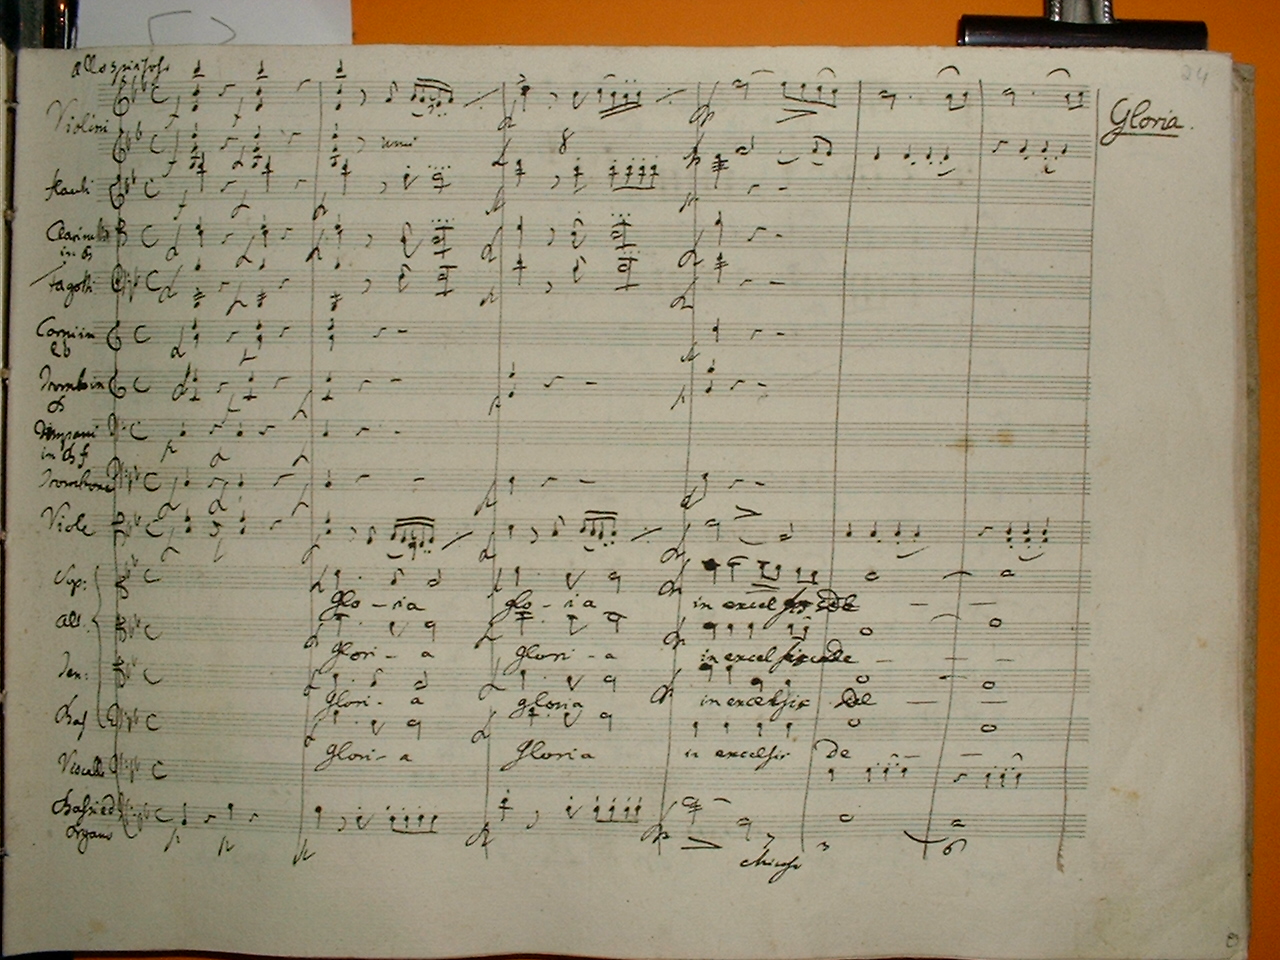 24
Gloria.
Violini
unis
8
flauti
Clarinetti
in B
Fagotti
Corni in
Eb
Trombe in
B
Timpani
in B f
Trombone
Viole
Sop:
Glo - ria glo - ria in excel
Alt:
Glori - a Glori - a in excel
Ten:
Glori - a gloria in excelsis De
Bass
Glori - a Gloria in excelsis De
Violoncello
Bassi ed
Organo
3 6